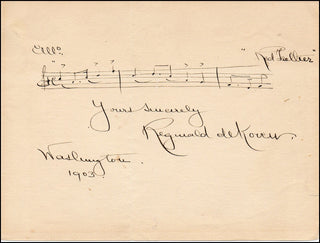 Allo.
"Red Feather"
Yours sincerely
Reginald de Koven.
Washington.
1903.